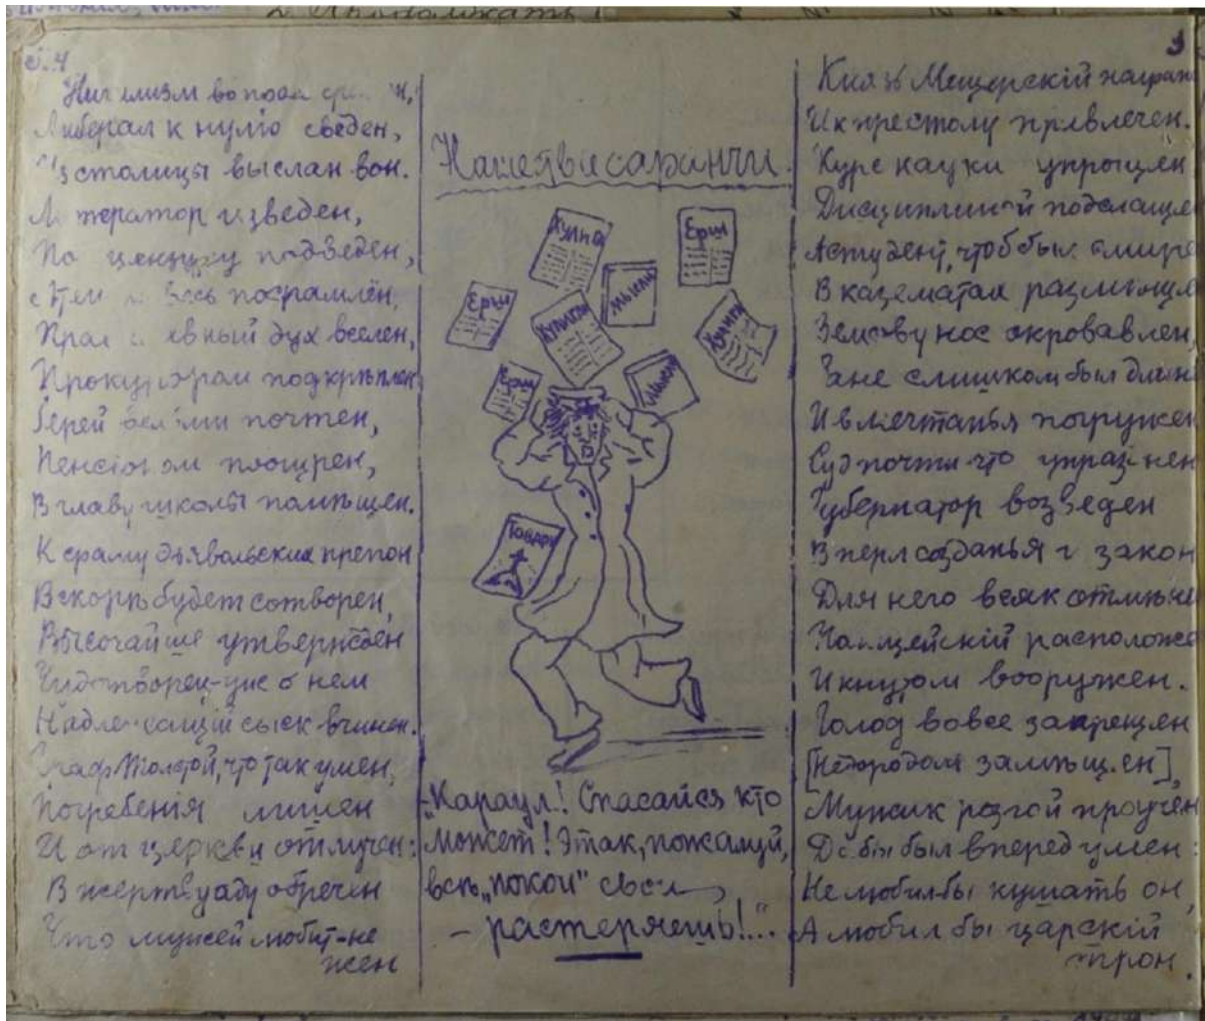 с. 4
Нигилизм во
Либерал к нулю сведен,
Из столицы выслан вон.
Литератор изведен,
По подведен,
весь посрамлён,
дух вселен,
Прокурором подкрѣплен
Герей почтен,
Пенсіоном поощрен,
В главу школы помѣщен.
К сраму дьявольских препон
Вскорѣ будет сотворен,
Высочайше утвержден
Чудотворец-уж о нем
Надлежащій сыск вчинен.
Граф Толстой, что так умен,
Погребенія лишен
И от церкви отлучен:
В жертву аду обречен
Что мужей любит-не
жен
Нашествие саранчи.
Хулиг
Ерш
Ерш
Мысли
Хулиган
Хулиган
Ерш
Мысли
Товари
„Караул! Спасайся кто
может! Этак, пожалуй,
всѣ „покои" свои
– растеряешь!..."
3
Князь Мещерскій награж
И к престолу привлечен.
Курс науки упрощен
Дисциплиной подслаще
А студент, чтоб был смире
В казематах размѣще
Земству нос окровавлен,
Зане слишком был длин
И в мечтанья погружен
Суд почти-что упразднен
Губернатор возведен
В перл созданья и закон
Для него всяк отмѣне
Полицейскій расположе
И кнутом вооружен.
Голод вовсе запрещен
[Недородом замѣщ.ен],
Мужик розгой проучен
Дабы был вперед умен:
Не любил бы кушать он,
А любил бы царскій
трон.